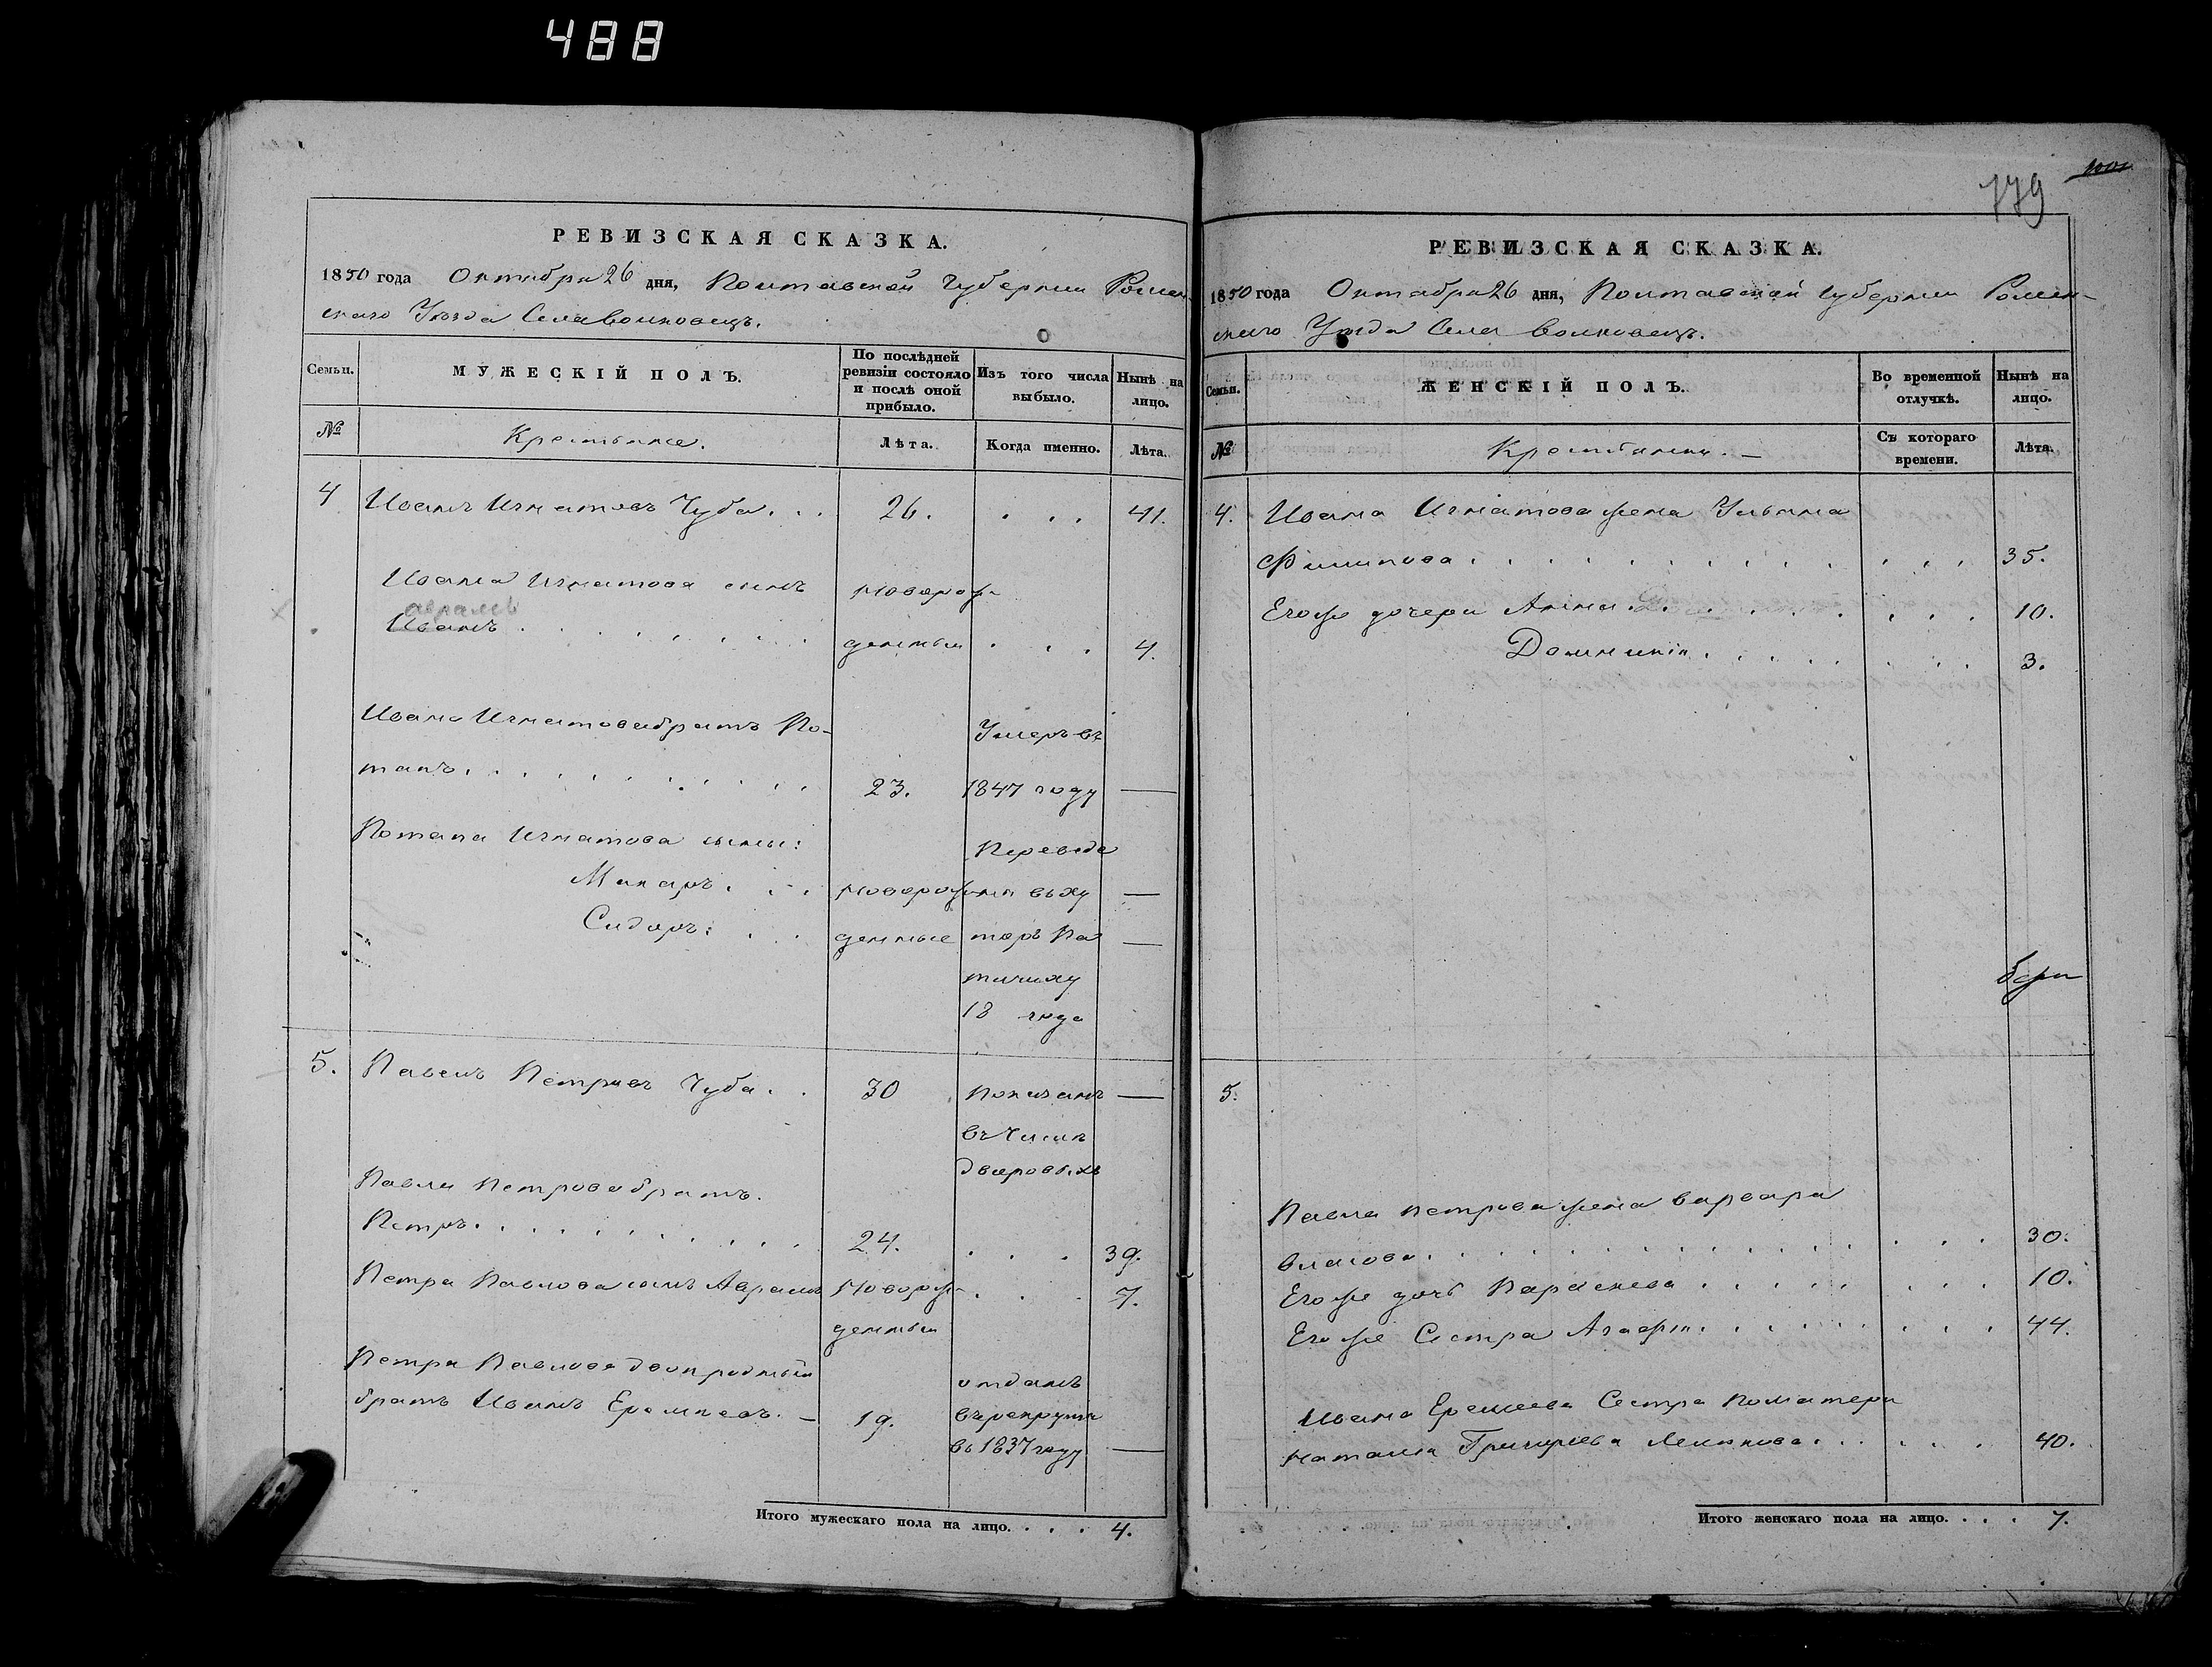 488
РЕВИЗСКАЯ СКАЗКА.
1850 года Октября 26 дня, Полтавской Губернии Ромен-
скаго Уѣзда Села Волковецъ.
Семьи.
МУЖЕСКІЙ ПОЛЪ.
По послѣдней ревизіи состояло и послѣ оной прибыло.
Изъ того числа выбыло.
Нынѣ на лицо.
№
Крестьяне.
Лѣта.
Когда именно.
Лѣта.
4 Иванъ Игнатовъ Чуба. . . 26. . . . 41.
Ивана Игнатова сынъ новорож-
авраамъ
Иванъ . . . . . . . . денный . . . 4.
Ивана Игнатова братъ По- Умеръ въ
тапъ. . . . . . . . . 23. 1847 году —
Потапа Игнатова сыны: Переведе
Макаръ. . . . новорож- ны въ ху —
Сидоръ: . . . денные торъ —
18 года
5. Павелъ Петровъ Чуба. . 30 показанъ —
въ числѣ
дворовыхъ
Павла Петрова братъ.
Петръ. . . . . . . . . . 24. . . . 39.
Петра Павлова сынъ Аврамъ новорож- . . . 7.
денный
Петра Павлова двоюродный отданъ
братъ Иванъ Еремѣевъ. — 19. въ рекруты
въ 1837 году —
Итого мужескаго пола на лицо. . . . 4.
779
РЕВИЗСКАЯ СКАЗКА.
1850 года Октября 26 дня, Полтавской Губерніи Ромен-
скаго Уѣзда Села Волковецъ.
Семьи.
ЖЕНСКІЙ ПОЛЪ.
Во временной отлучкѣ.
Нынѣ на лицо.
№
Крестьянки. —
Съ котораго времени.
Лѣта.
4. Ивана Игнатова жена Ульяна
Филипова . . . . . . . . . . . . . 35.
Егоже дочери Анна . . . . . . . . . 10.
Домникія . . . . . . . . 3.
5.
Павла Петрова жена Варвара
Власова. . . . . . . . . . . . . . . 30.
Егоже дочь Параскева . . . . . . . . 10.
Егоже Сестра Агафія. . . . . . . . . 44.
Ивана Еремеева Сестра по матери
Наталья Григорьева . . . . . . 40.
Итого женскаго пола на лицо. . . . 7.